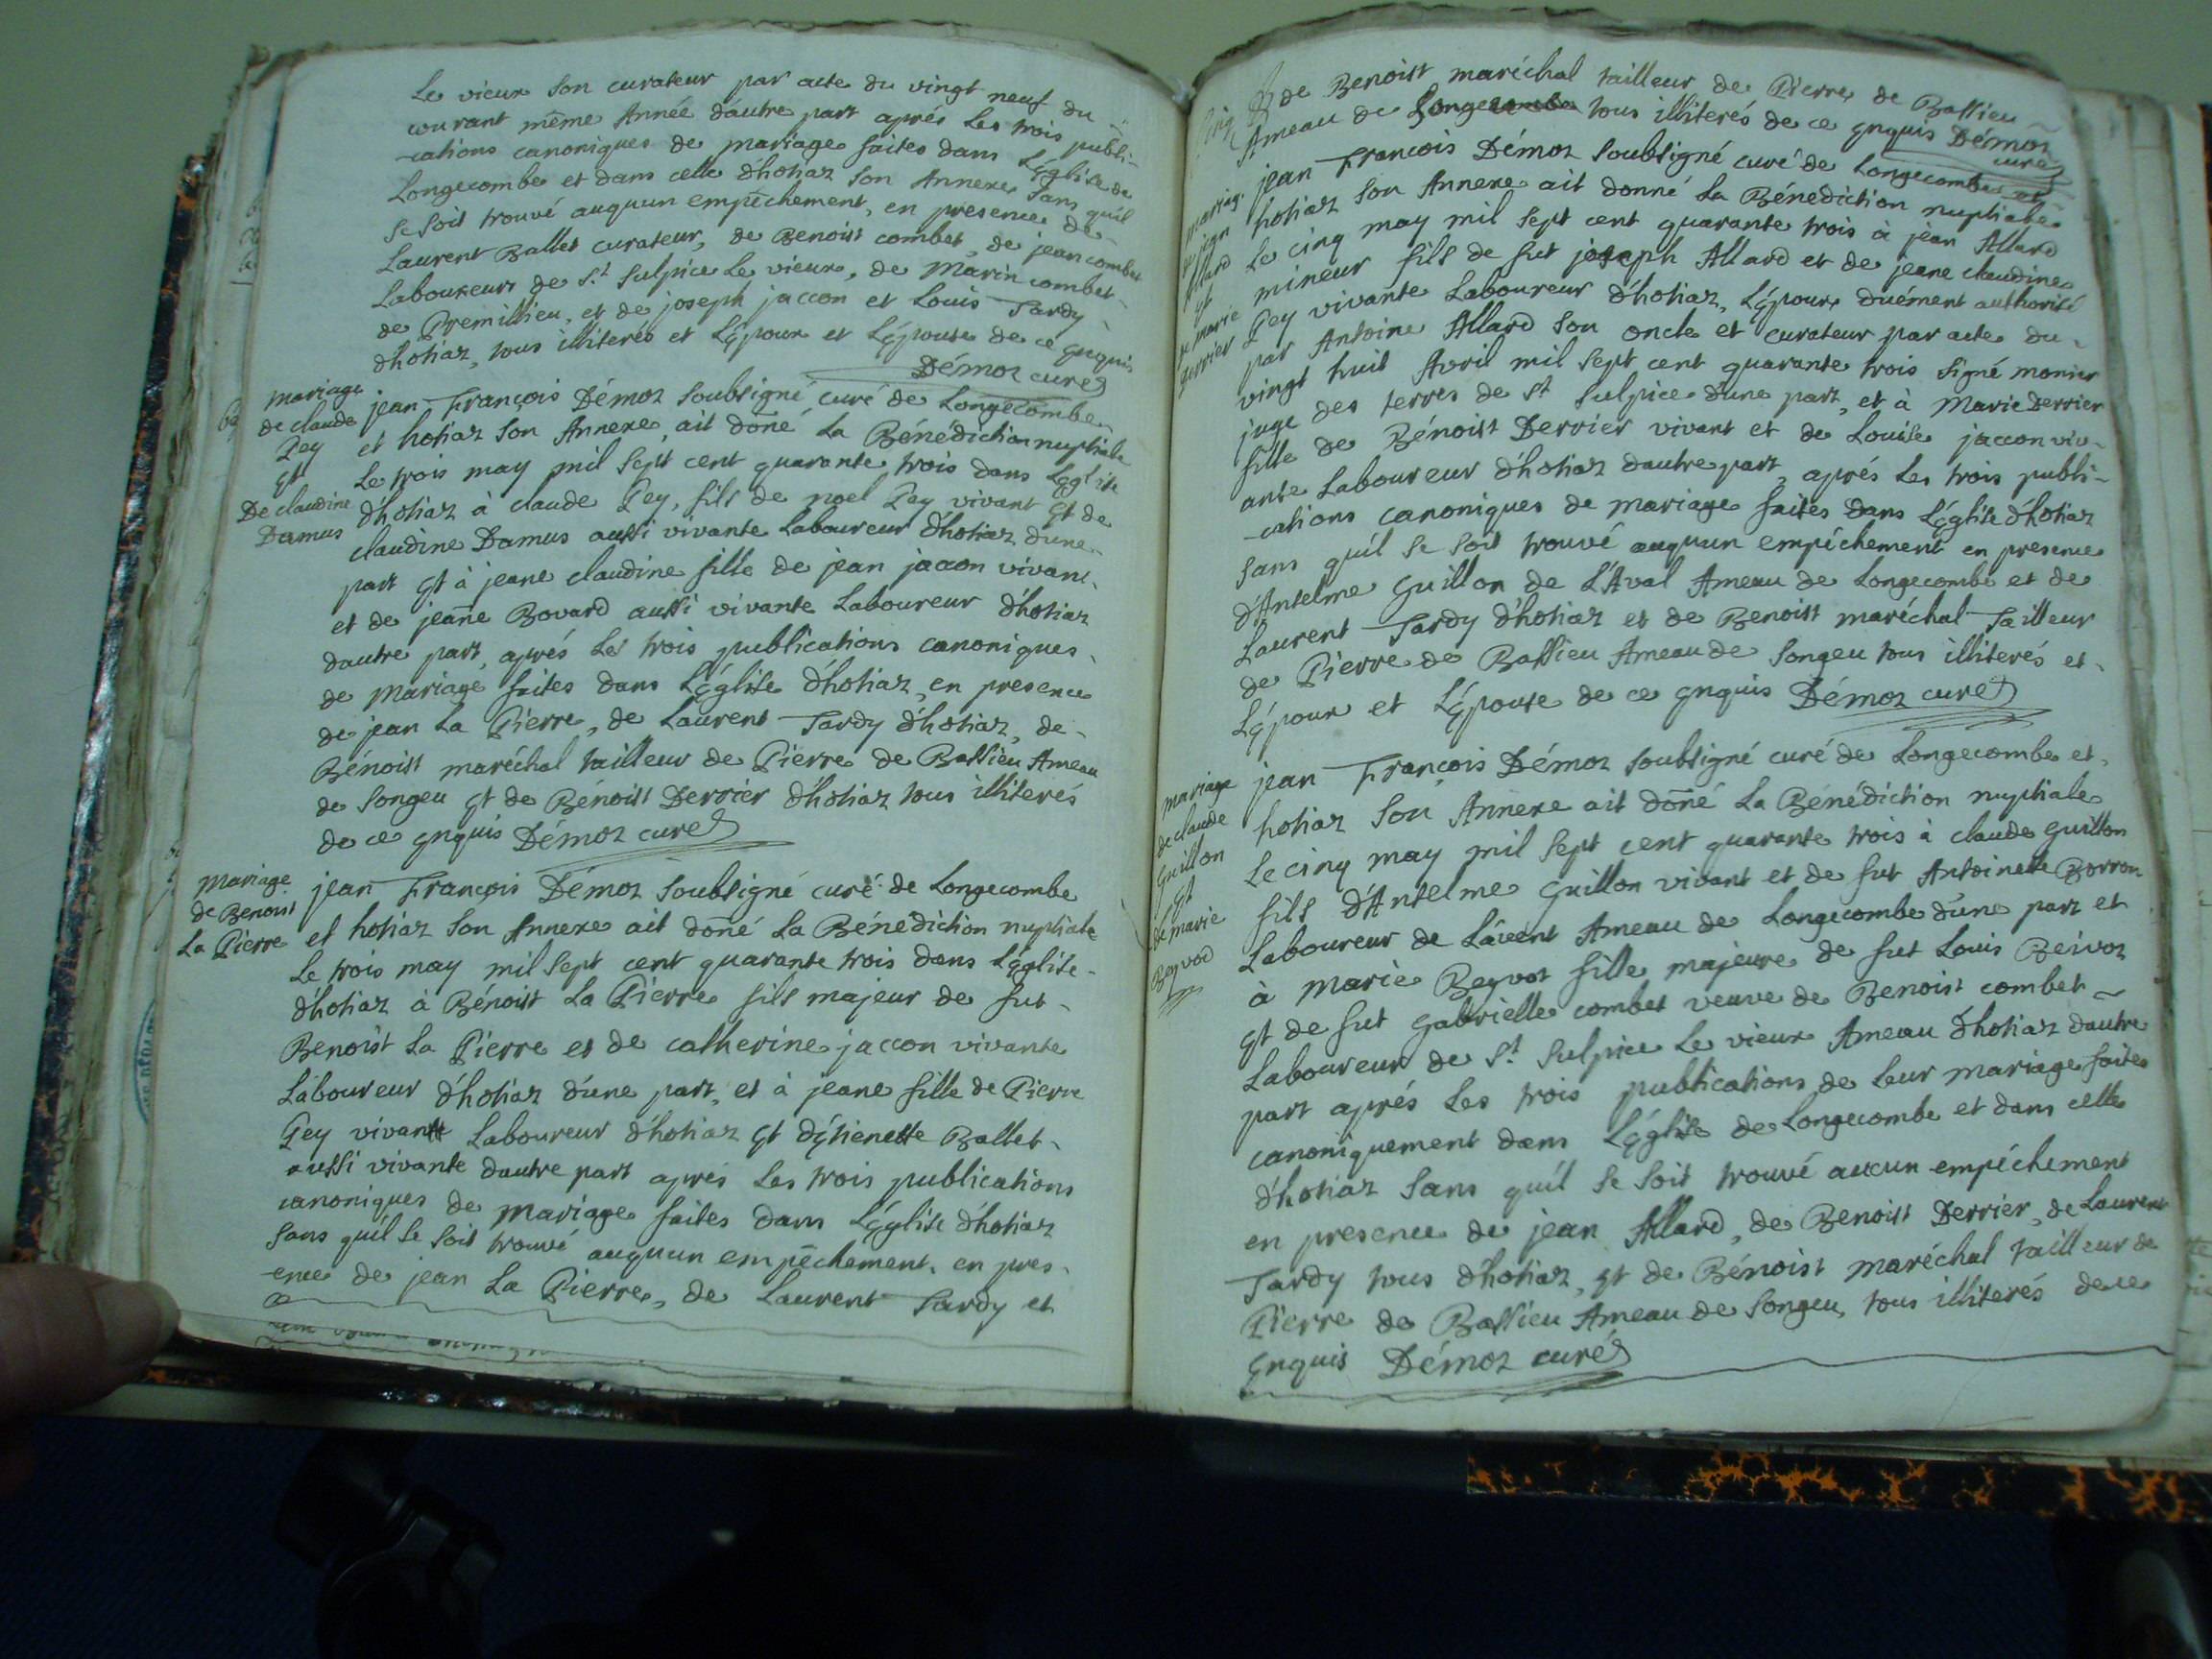 Le vieux son curateur par acte du vingt neuf du
courant même Année d'autre part aprés Les trois publi-
-cations canoniques de mariage faites dans L'Église de
Longecombe et dans celle d'hotiaz son Annexe sans quil
se soit trouvé auquun empêchement, en presence de
Laurent Ballet curateur, de Benoist combet, de jean combet
Laboureurs de St Sulpice Le vieux, de Marin combet
de Premillieu, et de joseph jaccon et Louis Tardy
d'hotiaz, tous illiterés et L'Époux et L'Épouse de ce Enquis
Démoz curé
mariage
de claude
Pey
Et
De claudine
Damus
jean François Démoz soubsigné curé de Longecombe
et hotiaz son Annexe, ait doñé La Bénédiction nuptiale
Le trois may mil sept cent quarante trois dans L'Eglise
d'hotiaz à claude Pey, fils de noel Pey vivant Et de
claudine Damus aussi vivante Laboureur d'hotiaz d'une
part Et à jeane claudine fille de jean jaccon vivant
et de jeañe Bovard aussi vivante Laboureur d'hotiaz
dautre part, aprés Les trois publications canoniques
de mariage faites dans L'Église d'hotiaz, en presence
de jean La Pierre, de Laurent Tardy d'hotiaz, de
Bénoist maréchal tailleur de Pierre de Bassieu Ameau
de Songeu Et de Bénoist Derrier d'hotiaz tous illiterés
de ce Enquis Démoz curé
Mariage
de Benoist
La Pierre
jean François Démoz soubsigné curé de Longecombe
et hotiaz son Annexe ait doñé La Bénédiction nuptiale
Le trois may mil sept cent quarante trois dans L'Église
d'hotiaz à Bénoist La Pierre fils majeur de fut
Benoist La Pierre et de catherine jaccon vivante
Laboureur d'hotiaz d'une part, et à jeane fille de Pierre
Pey vivant Laboureur d'hotiaz Et d'Etienette Ballet
aussi vivante dautre part aprés Les trois publications
canoniques de mariage faites dans L'Église d'hotiaz
sans quil se soit trouvé auquun empêchement, en pres-
-ence de jean La Pierre, de Laurent Tardy et
de Benoist maréchal tailleur de Pierre de Bassieu
Ameau de Songeu tous illiterés de ce Enquis Démoz
curé
mariag.
de jean
Allard
Et
de marie
Derrier
jean François Démoz soubsigné curé de Longecombe et
hotiaz son Annexe ait donné La Bénediction nuptiale
Le cinq may mil sept cent quarante trois à jean Allard
mineur fils de fut joseph Allard et de jeane claudine
Pey vivante Laboureur d'hotiaz, L'Époux duément authorisé
par Antoine Allard son oncle et curateur par acte du
vingt huit Avril mil sept cent quarante trois signé monier
juge des terres de St Sulpice d'une part, et à Marie Derrier
fille de Bénoist Derrier vivant et de Louise jaccon viv-
ante Laboureur d'hotiaz dautre part, aprés Les trois publi-
-cations canoniques de mariage faites dans L'Église d'hotiaz
sans quil se soit trouvé auquun empêchement en presence
d'Antelme Guillon de L'Aval Ameau de Longecombe et de
Laurent Tardy d'hotiaz et de Benoist maréchal Tailleur
de Pierre de Bassieu Ameau de Songeu tous illiterés et
L'Époux et L'Épouse de ce Enquis Démoz curé
mariage
de claude
Guillon
Et
de marie
Beyvod
jean François Démoz soubsigné curé de Longecombe et
hotiaz son Annexe ait doñé La Bénédiction nuptiale
Le cinq may mil sept cent quarante trois à claude Guillon
fils d'Antelme Guillon vivant et de fut Antoinette Borron
Laboureur de Lavent Ameau de Longecombe d'une part et
à marie Beyvoz fille majeure de fut Louis Beivoz
Et de fut Gabrielle combet veuve de Benoist combet
Laboureur de St Sulpice Le vieux Ameau d'hotiaz dautre
part aprés Les trois publications de Leur mariage faites
canoniquement dans L'Église de Longecombe et dans celle
d'hotiaz sans quil se soit trouvé aucun empéchement
en presence de jean Allard, de Benoist Derrier, de Laurent
Tardy tous d'hotiaz, Et de Bénoist maréchal tailleur de
Pierre de Bassieu Ameau de Songeu, tous illiterés de ce
Enquis Démoz curé